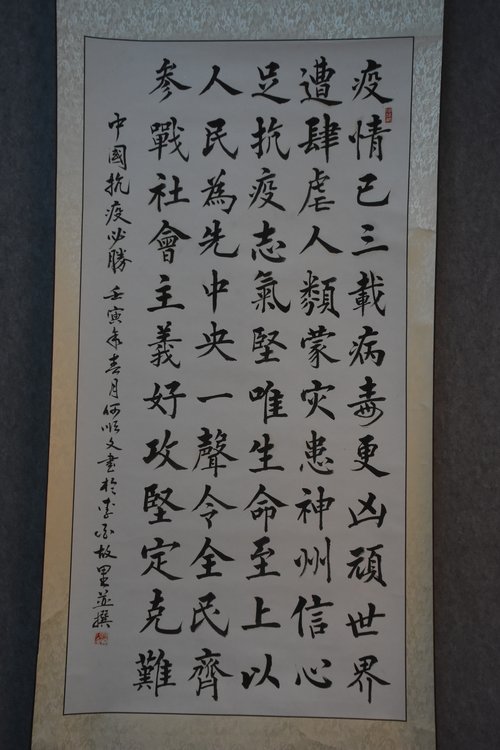 疫情已三載病毒更凶頑世界
遭肆虐人類蒙灾患神州信心
足抗疫志氣堅唯生命至上以
人民為先中央一聲令全民齊
參戰社會主義好攻堅定克難
中國抗疫必勝 壬寅年春月何順文書於李白故里並撰